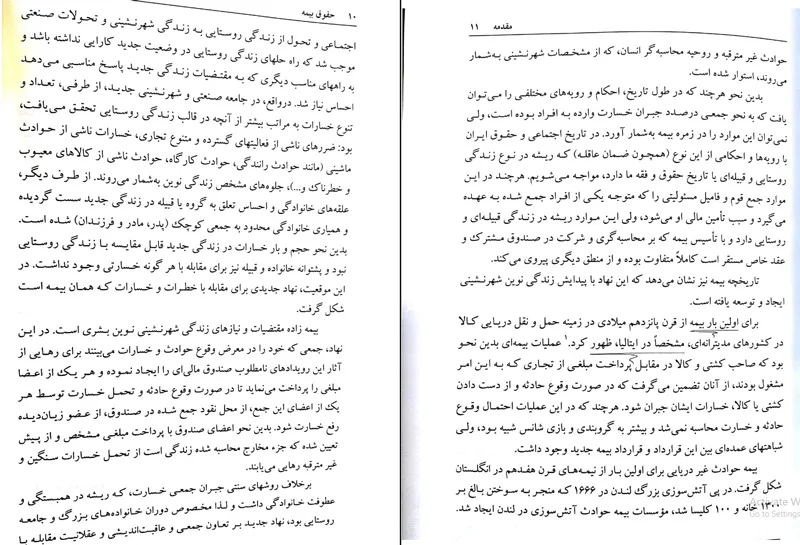 ۱۰ حقوق بیمه
اجتماعی و تحول از زندگی روستایی به زندگی شهرنشینی و تحولات صنعتی
موجب شد که راه حلهای زندگی روستایی در وضعیت جدید کارایی نداشته باشد و
به راههای مناسب دیگری که به مقتضیات زندگی جدید پاسخ مناسبی می‌دهد
احساس نیاز شد. درواقع، در جامعه صنعتی و شهرنشینی جدید، از طرفی، تعداد و
تنوع خسارات به مراتب بیشتر از آنچه در قالب زندگی روستایی تحقق می‌یافت،
بود: ضررهای ناشی از فعالیتهای گسترده و متنوع تجاری، خسارات ناشی از حوادث
ماشینی (مانند حوادث رانندگی، حوادث کارگاه، حوادث ناشی از کالاهای معیوب
و خطرناک و...)، جلوه‌های مشخص زندگی نوین به‌شمار می‌روند. از طرف دیگر،
علقه‌های خانوادگی و احساس تعلق به گروه یا قبیله در زندگی جدید سست گردیده
و همیاری خانوادگی محدود به جمعی کوچک (پدر، مادر و فرزندان) شده است.
بدین نحو حجم و بار خسارات در زندگی جدید قابل مقایسه با زندگی روستایی
نبود و پشتوانه خانواده و قبیله نیز برای مقابله با هر گونه خسارتی وجود نداشت. در
این موقعیت، نهاد جدیدی برای مقابله با خطرات و خسارات که همان بیمه است
شکل گرفت.
بیمه زاده مقتضیات و نیازهای زندگی شهرنشینی نوین بشری است. در این
نهاد، جمعی که خود را در معرض وقوع حوادث و خسارات می‌بینند برای رهایی از
آثار این رویدادهای نامطلوب صندوق مالی‌ای را ایجاد نموده و هر یک از اعضا
مبلغی را پرداخت می‌نماید تا در صورت وقوع حادثه و تحمل خسارت توسط هر
یک از اعضای این جمع، از محل نقود جمع شده در صندوق، از عضو زیان‌دیده
رفع خسارت شود. بدین نحو اعضای صندوق با پرداخت مبلغی مشخص و از پیش
تعیین شده که جزء مخارج محاسبه شده زندگی است از تحمل خسارات سنگین و
غیر مترقبه رهایی می‌یابند.
برخلاف روشهای سنتی جبران جمعی خسارت، که ریشه در همبستگی و
عطوفت خانوادگی داشت و لذا مخصوص دوران خانواده‌های بزرگ و جامعه
روستایی بود، نهاد جدید بر تعاون جمعی و عاقبت‌اندیشی و عقلانیت مقابله با
مقدمه ۱۱
حوادث غیر مترقبه و روحیه محاسبه‌گر انسان، که از مشخصات شهرنشینی به‌شمار
می‌روند، استوار شده است.
بدین نحو هرچند که در طول تاریخ، احکام و رویه‌های مختلفی را می‌توان
یافت که به نحو جمعی درصدد جبران خسارت وارده به افراد بوده است، ولی
نمی‌توان این موارد را در زمره بیمه به‌شمار آورد. در تاریخ اجتماعی و حقوق ایران
با رویه‌ها و احکامی از این نوع (همچون ضمان عاقله) که ریشه در نوع زندگی
روستایی و قبیله‌ای یا تاریخ حقوق و فقه ما دارد، مواجه می‌شویم. هرچند در این
موارد جمع قوم و فامیل مسئولیتی را که متوجه یکی از افراد جمع شده به عهده
می‌گیرد و سبب تأمین مالی او می‌شود، ولی این موارد ریشه در زندگی قبیله‌ای و
روستایی دارد و با تأسیس بیمه که بر محاسبه‌گری و شرکت در صندوق مشترک و
عقد خاص مستقر است کاملاً متفاوت بوده و از منطق دیگری پیروی می‌کند.
تاریخچه بیمه نیز نشان می‌دهد که این نهاد با پیدایش زندگی نوین شهرنشینی
ایجاد و توسعه یافته است.
برای اولین بار بیمه از قرن پانزدهم میلادی در زمینه حمل و نقل دریایی کالا
در کشورهای مدیترانه‌ای، مشخصاً در ایتالیا، ظهور کرد.۱ عملیات بیمه‌ای بدین نحو
بود که صاحب کشتی و کالا در مقابل پرداخت مبلغی از تجاری که به این امر
مشغول بودند، از آنان تضمین می‌گرفت که در صورت وقوع حادثه و از دست دادن
کشتی یا کالا، خسارات ایشان جبران شود. هرچند که در این عملیات احتمال وقوع
حادثه و خسارت محاسبه نمی‌شد و بیشتر به گروبندی و بازی شانس شبیه بود، ولی
شباهتهای عمده‌ای بین این قرارداد و قرارداد بیمه جدید وجود داشت.
بیمه حوادث غیر دریایی برای اولین بار از نیمه‌های قرن هفدهم در انگلستان
شکل گرفت. در پی آتش‌سوزی بزرگ لندن در ۱۶۶۶ که منجر به سوختن بالغ بر
۱۳۰۰ خانه و ۱۰۰ کلیسا شد، مؤسسات بیمه حوادث آتش‌سوزی در لندن ایجاد شد.
Activate W
Go to Settings